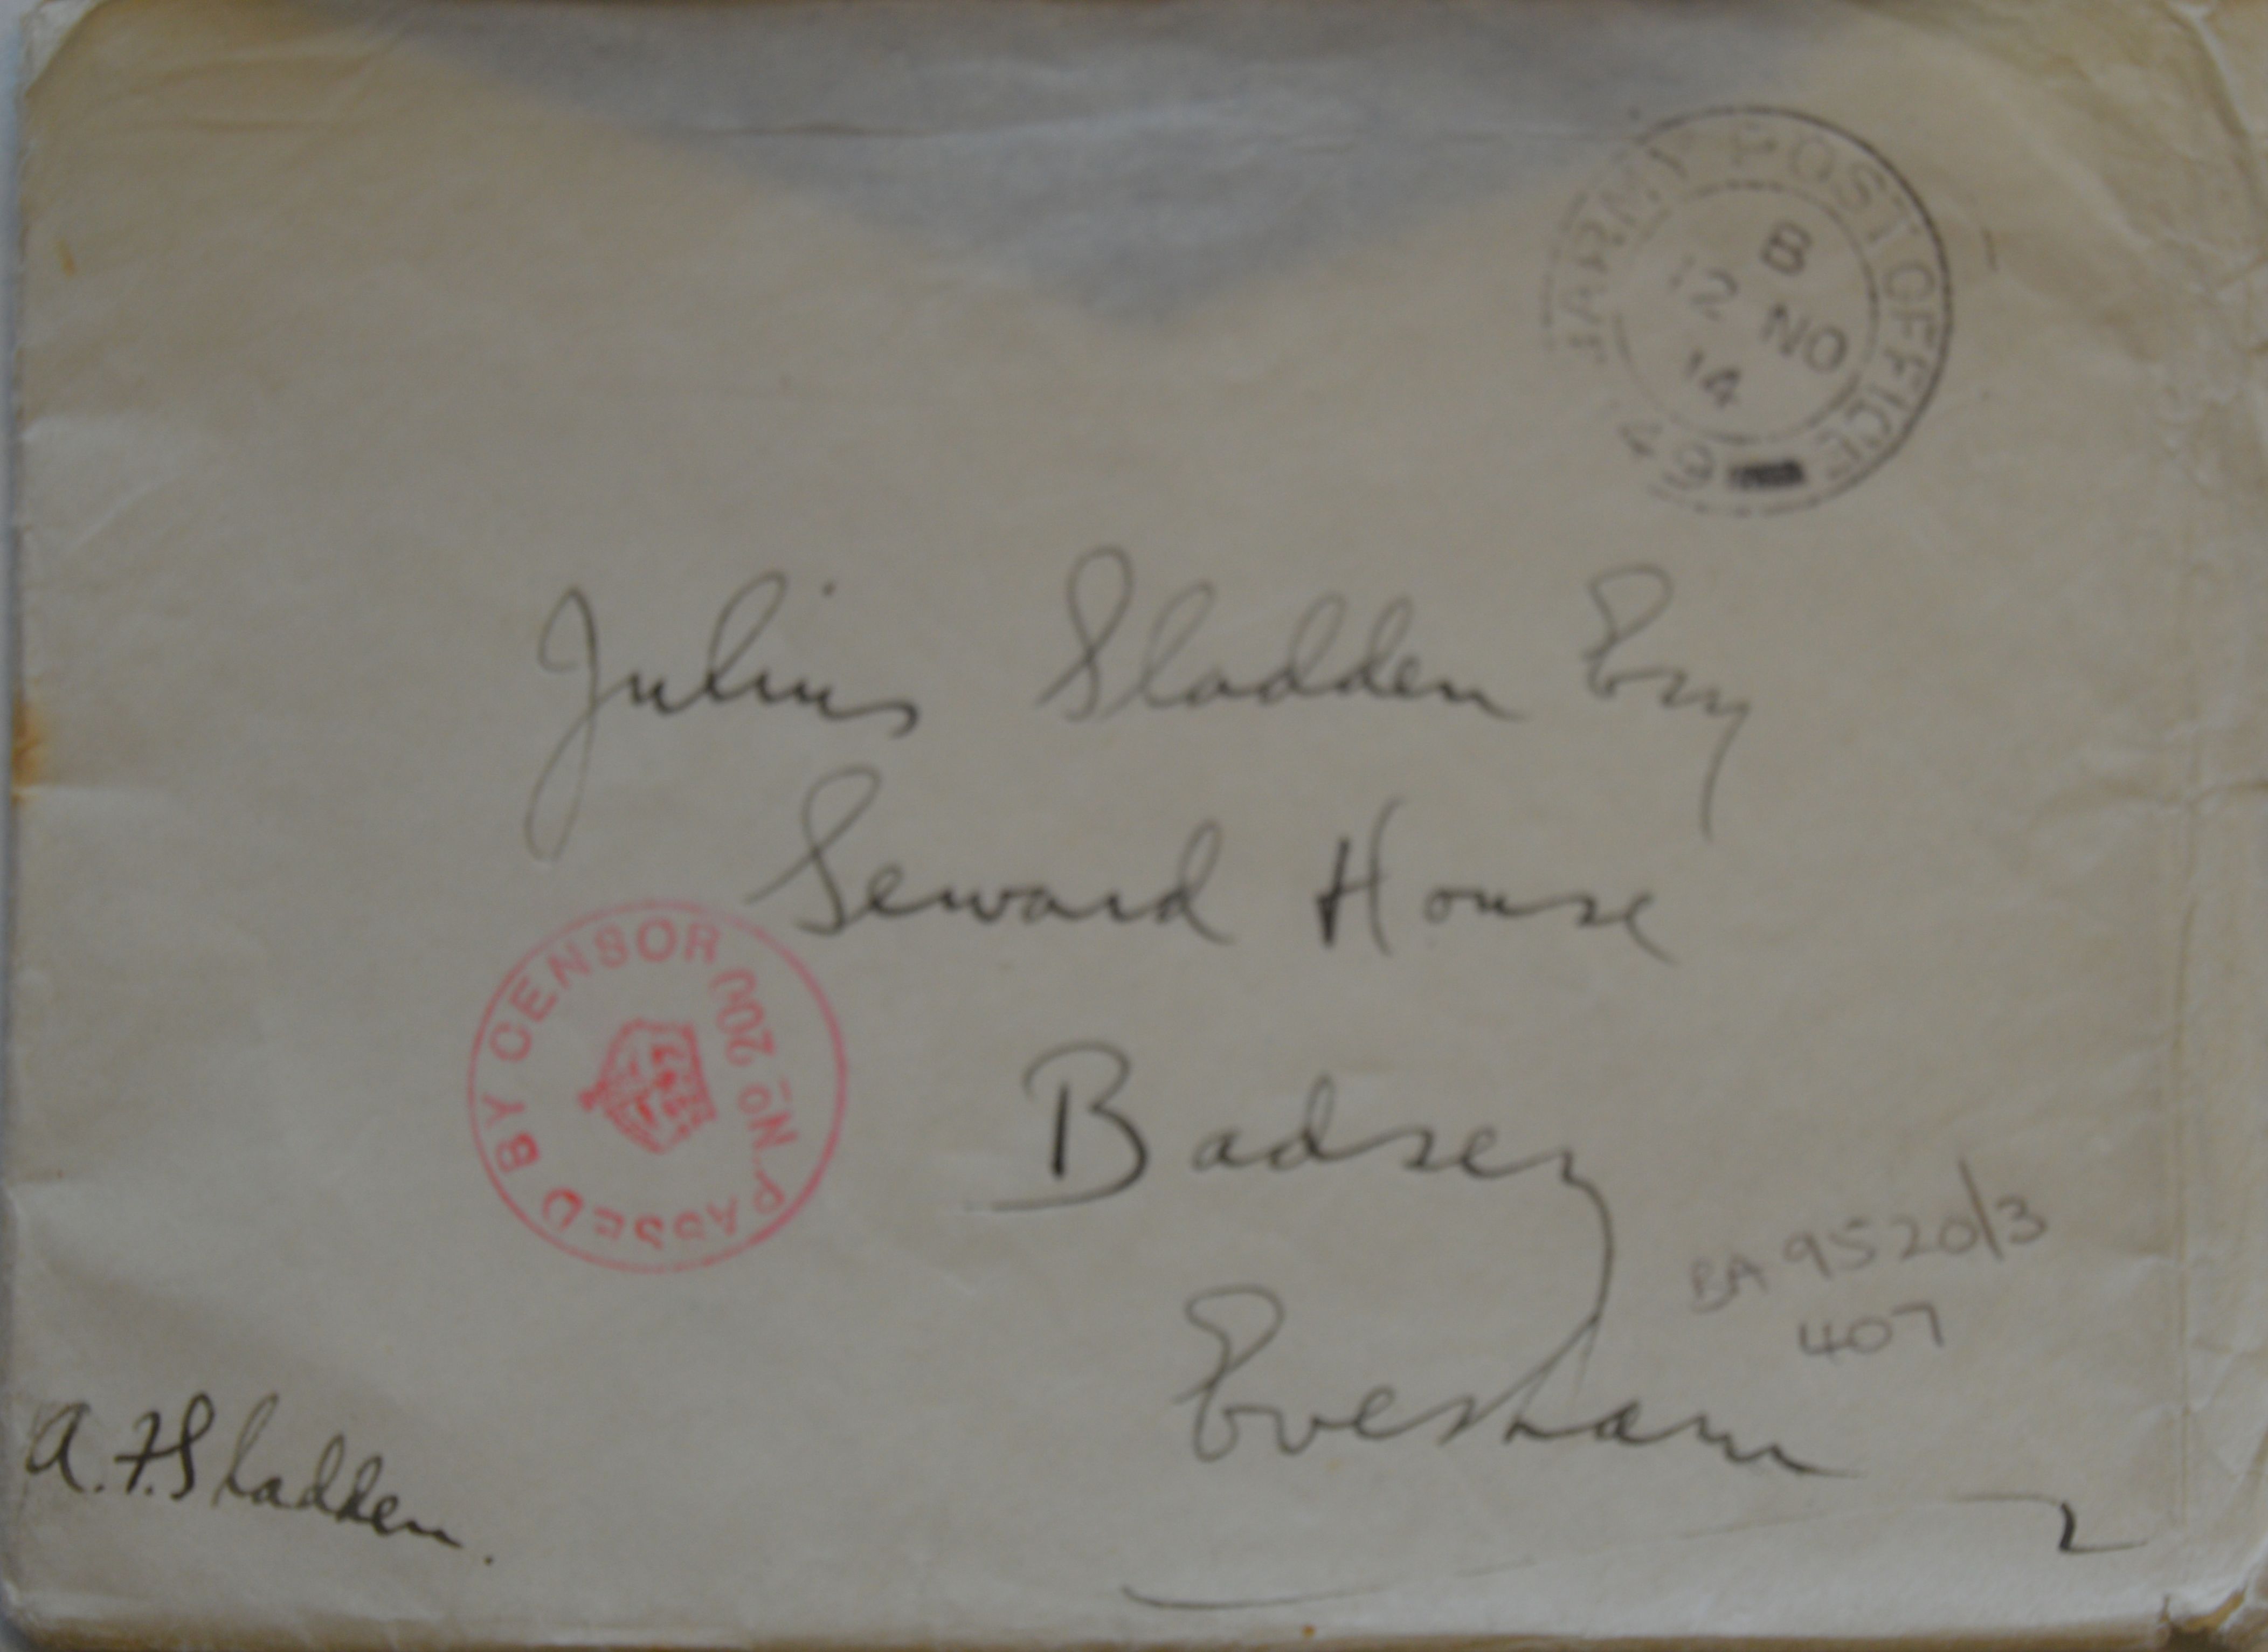 ARMY POST OFFICE
B
12 NO
14
49
Julius Sladden Esq
Seward House
PASSED BY CENSOR
No
Badsey
BA 9520/3
407
Evesham
A. F. Sladden.